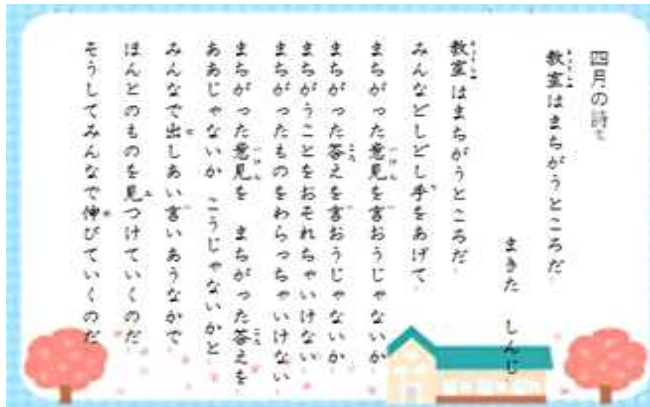 四月の詩
教室はまちがうところだ
まきた しんじ
教室はまちがうところだ
みんなどしどし手をあげて
まちがった意見を言おうじゃないか
まちがった答えを言おうじゃないか
まちがうことをおそれちゃいけない
まちがったものをわらっちゃいけない
まちがった意見を まちがった答えを
ああじゃないか こうじゃないかと
みんなで出しあい言いあうなかで
ほんとのものを見つけていくのだ
そうしてみんなで伸びていくのだ